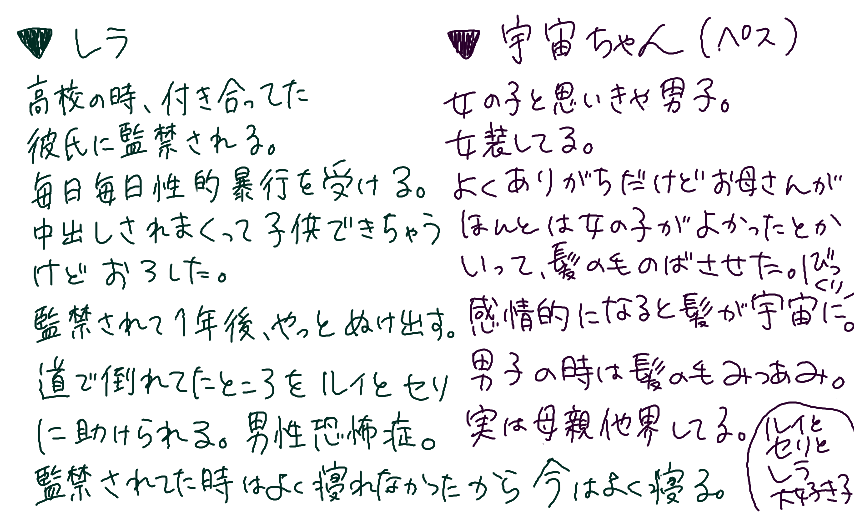 ▼レラ
高校の時、付き合ってた
彼氏に監禁される。
毎日毎日性的暴行を受ける。
中出しされまくって子供できちゃう
けどおろした。
監禁されて1年後、やっとぬけ出す。
道で倒れてたところをルイとセリ
に助けられる。男性恐怖症。
監禁されてた時はよく寝れなかったから今はよく寝る。
▼宇宙ちゃん(ペス)
女の子と思いきや男子。
女装してる。
よくありがちだけどお母さんが
ほんとは女の子がよかったとか
いって、髪の毛のばさせた。
びっくり
感情的になると髪が宇宙に。
男子の時は髪の毛みつあみ。
実は母親他界してる。
ルイと
セリと
レラ
大好き子